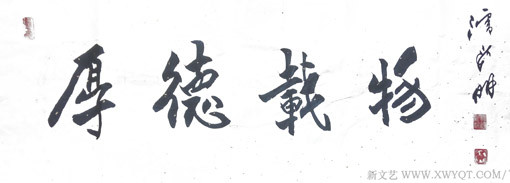 厚德載物
新文艺 WWW.XWYQT.COM/